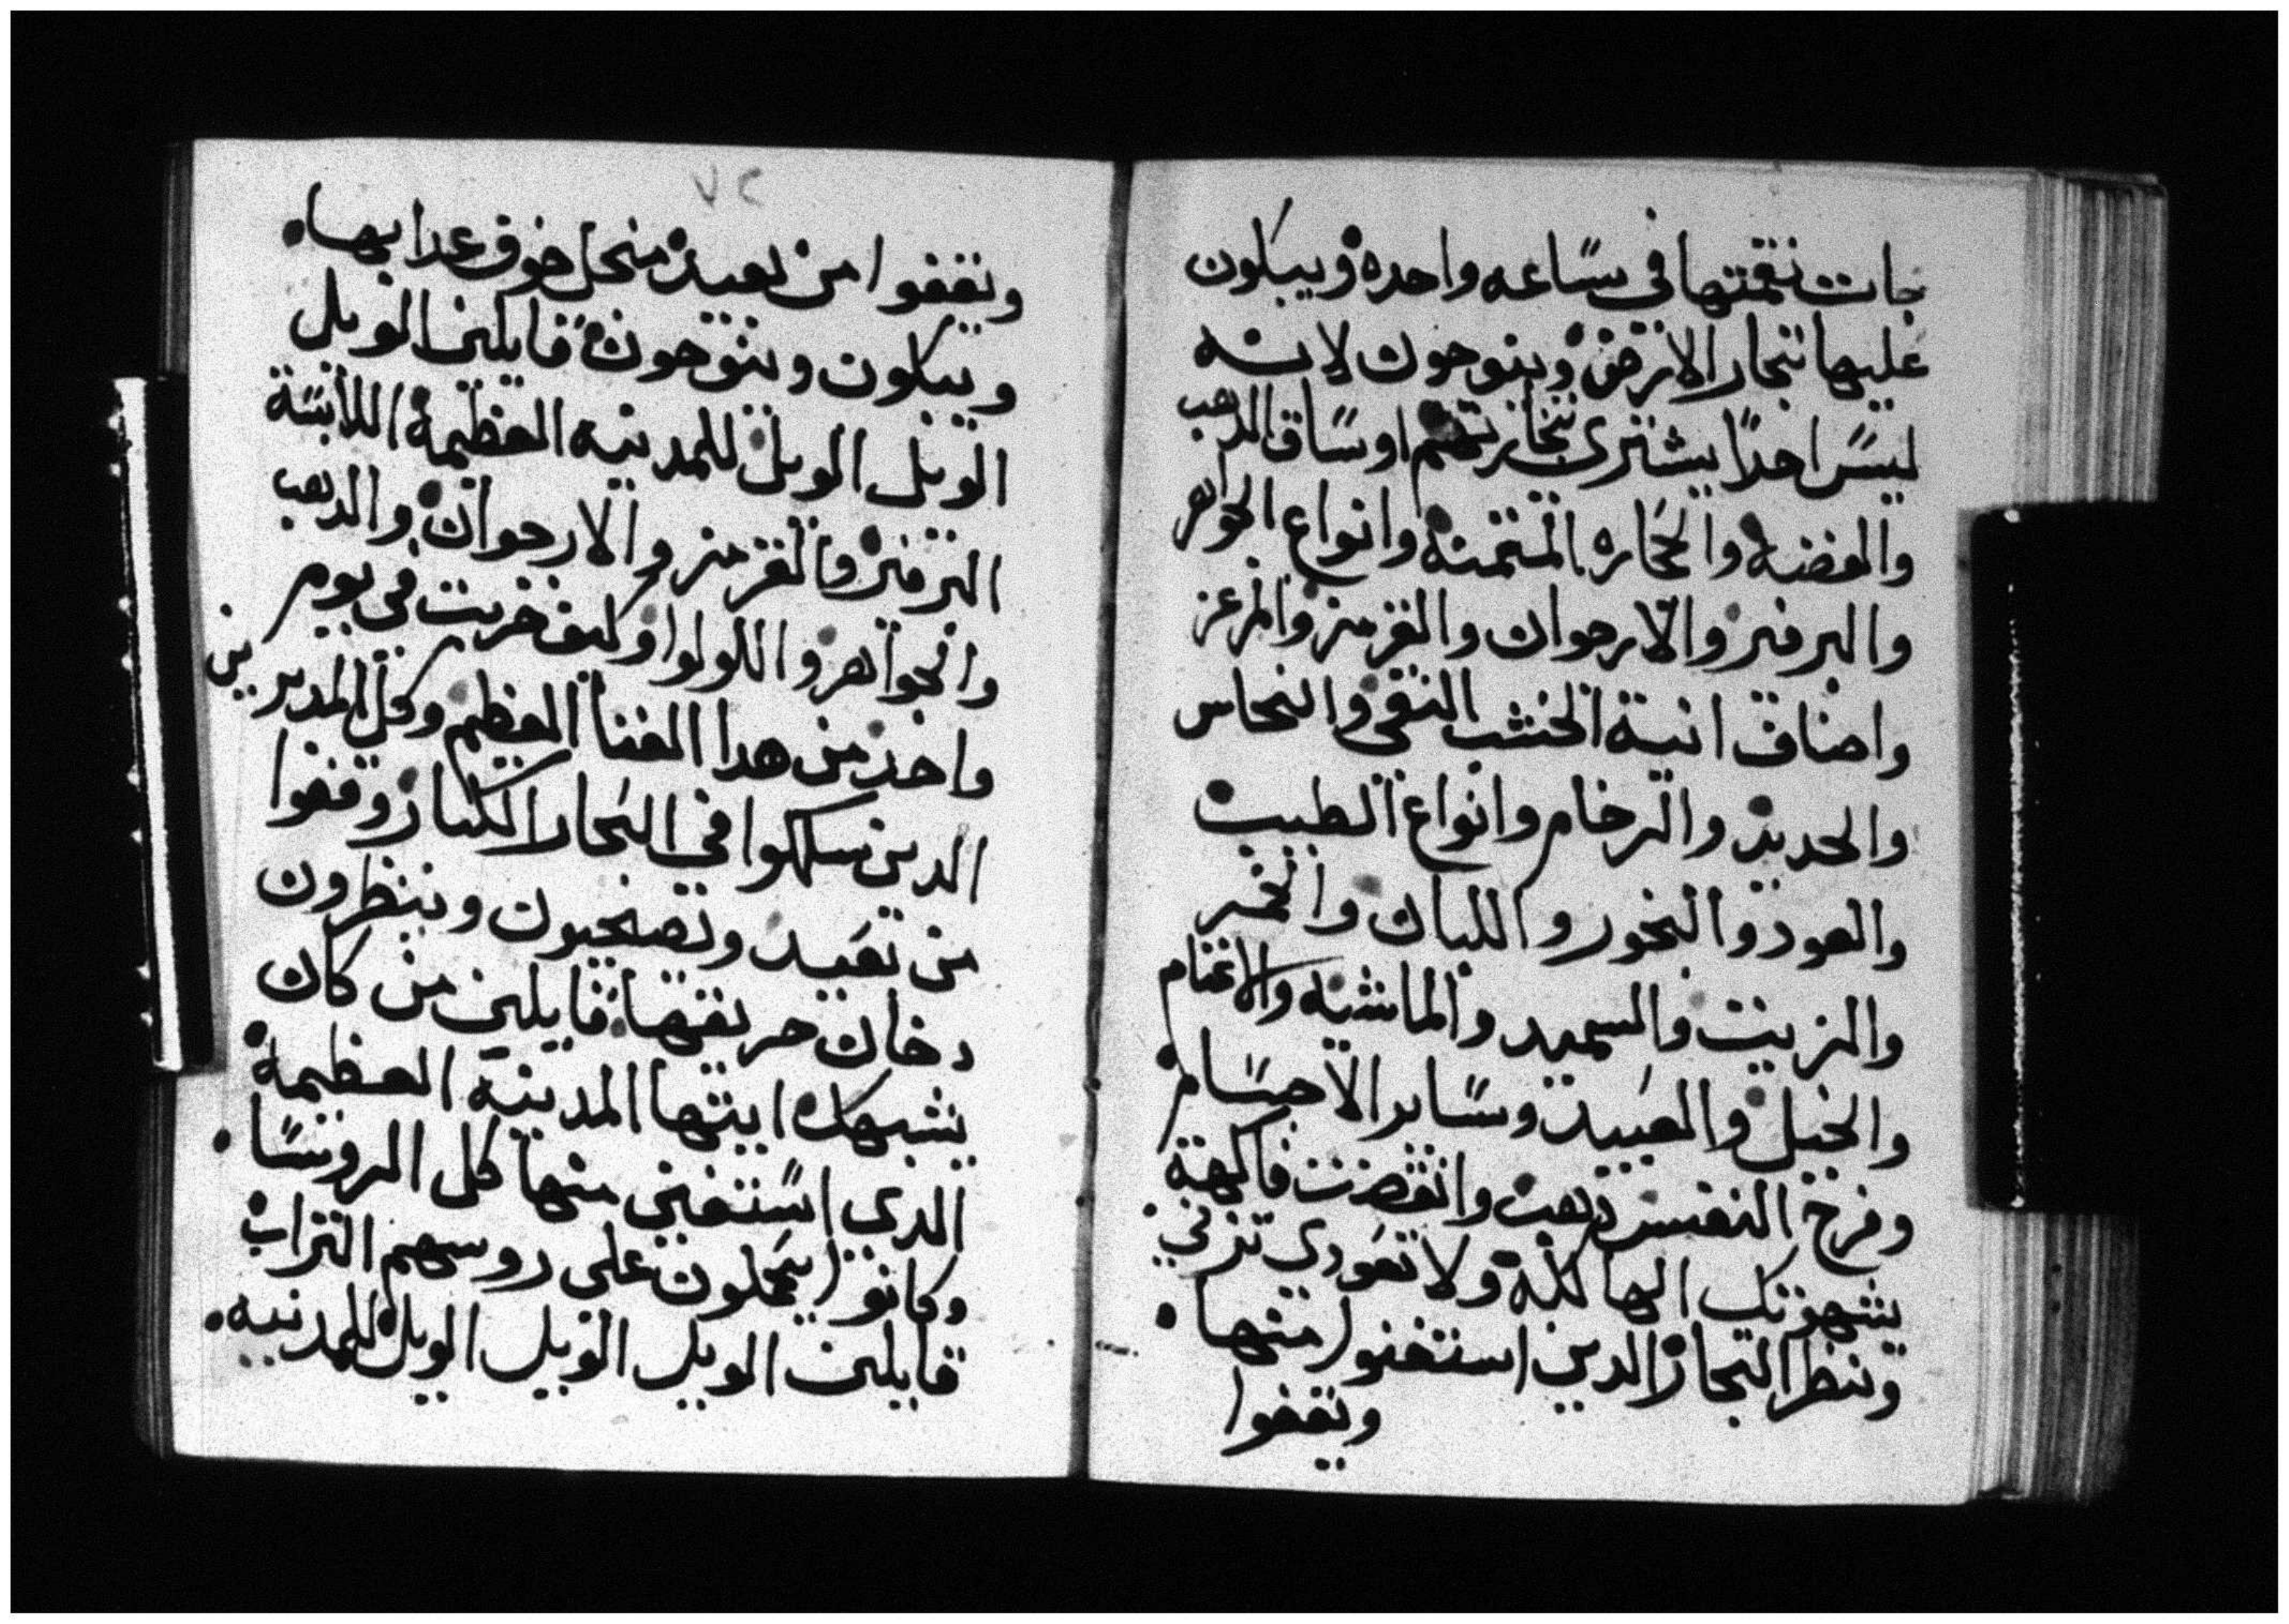 جات نقمتها في ساعه واحده ويبكون
عليها تجار الارض وينوحون لانه
ليس احدًا يشتري تجارتهم اوساق الدهب
والفضه والحجاره المتمنه وانواع الجوهر
والبرفير والارجوان والقرمز والمرعز
واصناف انية الخشب النقي والنحاس
والحديد والرخام وانواع الطيب
والعود والبخور واللبان والخمر
والزيت والسميد والماشيه والاغنام
والخيل والعبيد وساير الاجسام
وفرح النفس دهب وانقضت فاكهة
يشهوتك الهالكة ولا تعودي تزني
وننظر التجار الدين استغنوا منها
ويقفوا
٧٢
ويقفوا من بعيد منحل خوف عدابها
ويبكون وينوحون قايلين الويل
الويل الويل للمدينه العظيمة اللابسة
البرفير والقرمز والارجوان والدهب
والجواهر واللولوا وكيف خربت في يوم
واحد من هدا الغنا العظيم وكل المدبرين
الدين سلكوا في البحار الكبار وقفوا
من بعيد ويصيحون وينظرون
دخان حريقها قايلين من كان
يشبهك ايتها المدينة العظيمة
الدي استغني منها كل الروسا
وكانوا يحملون علي روسهم التراب
قايلين الويل الويل الويل للمدينه